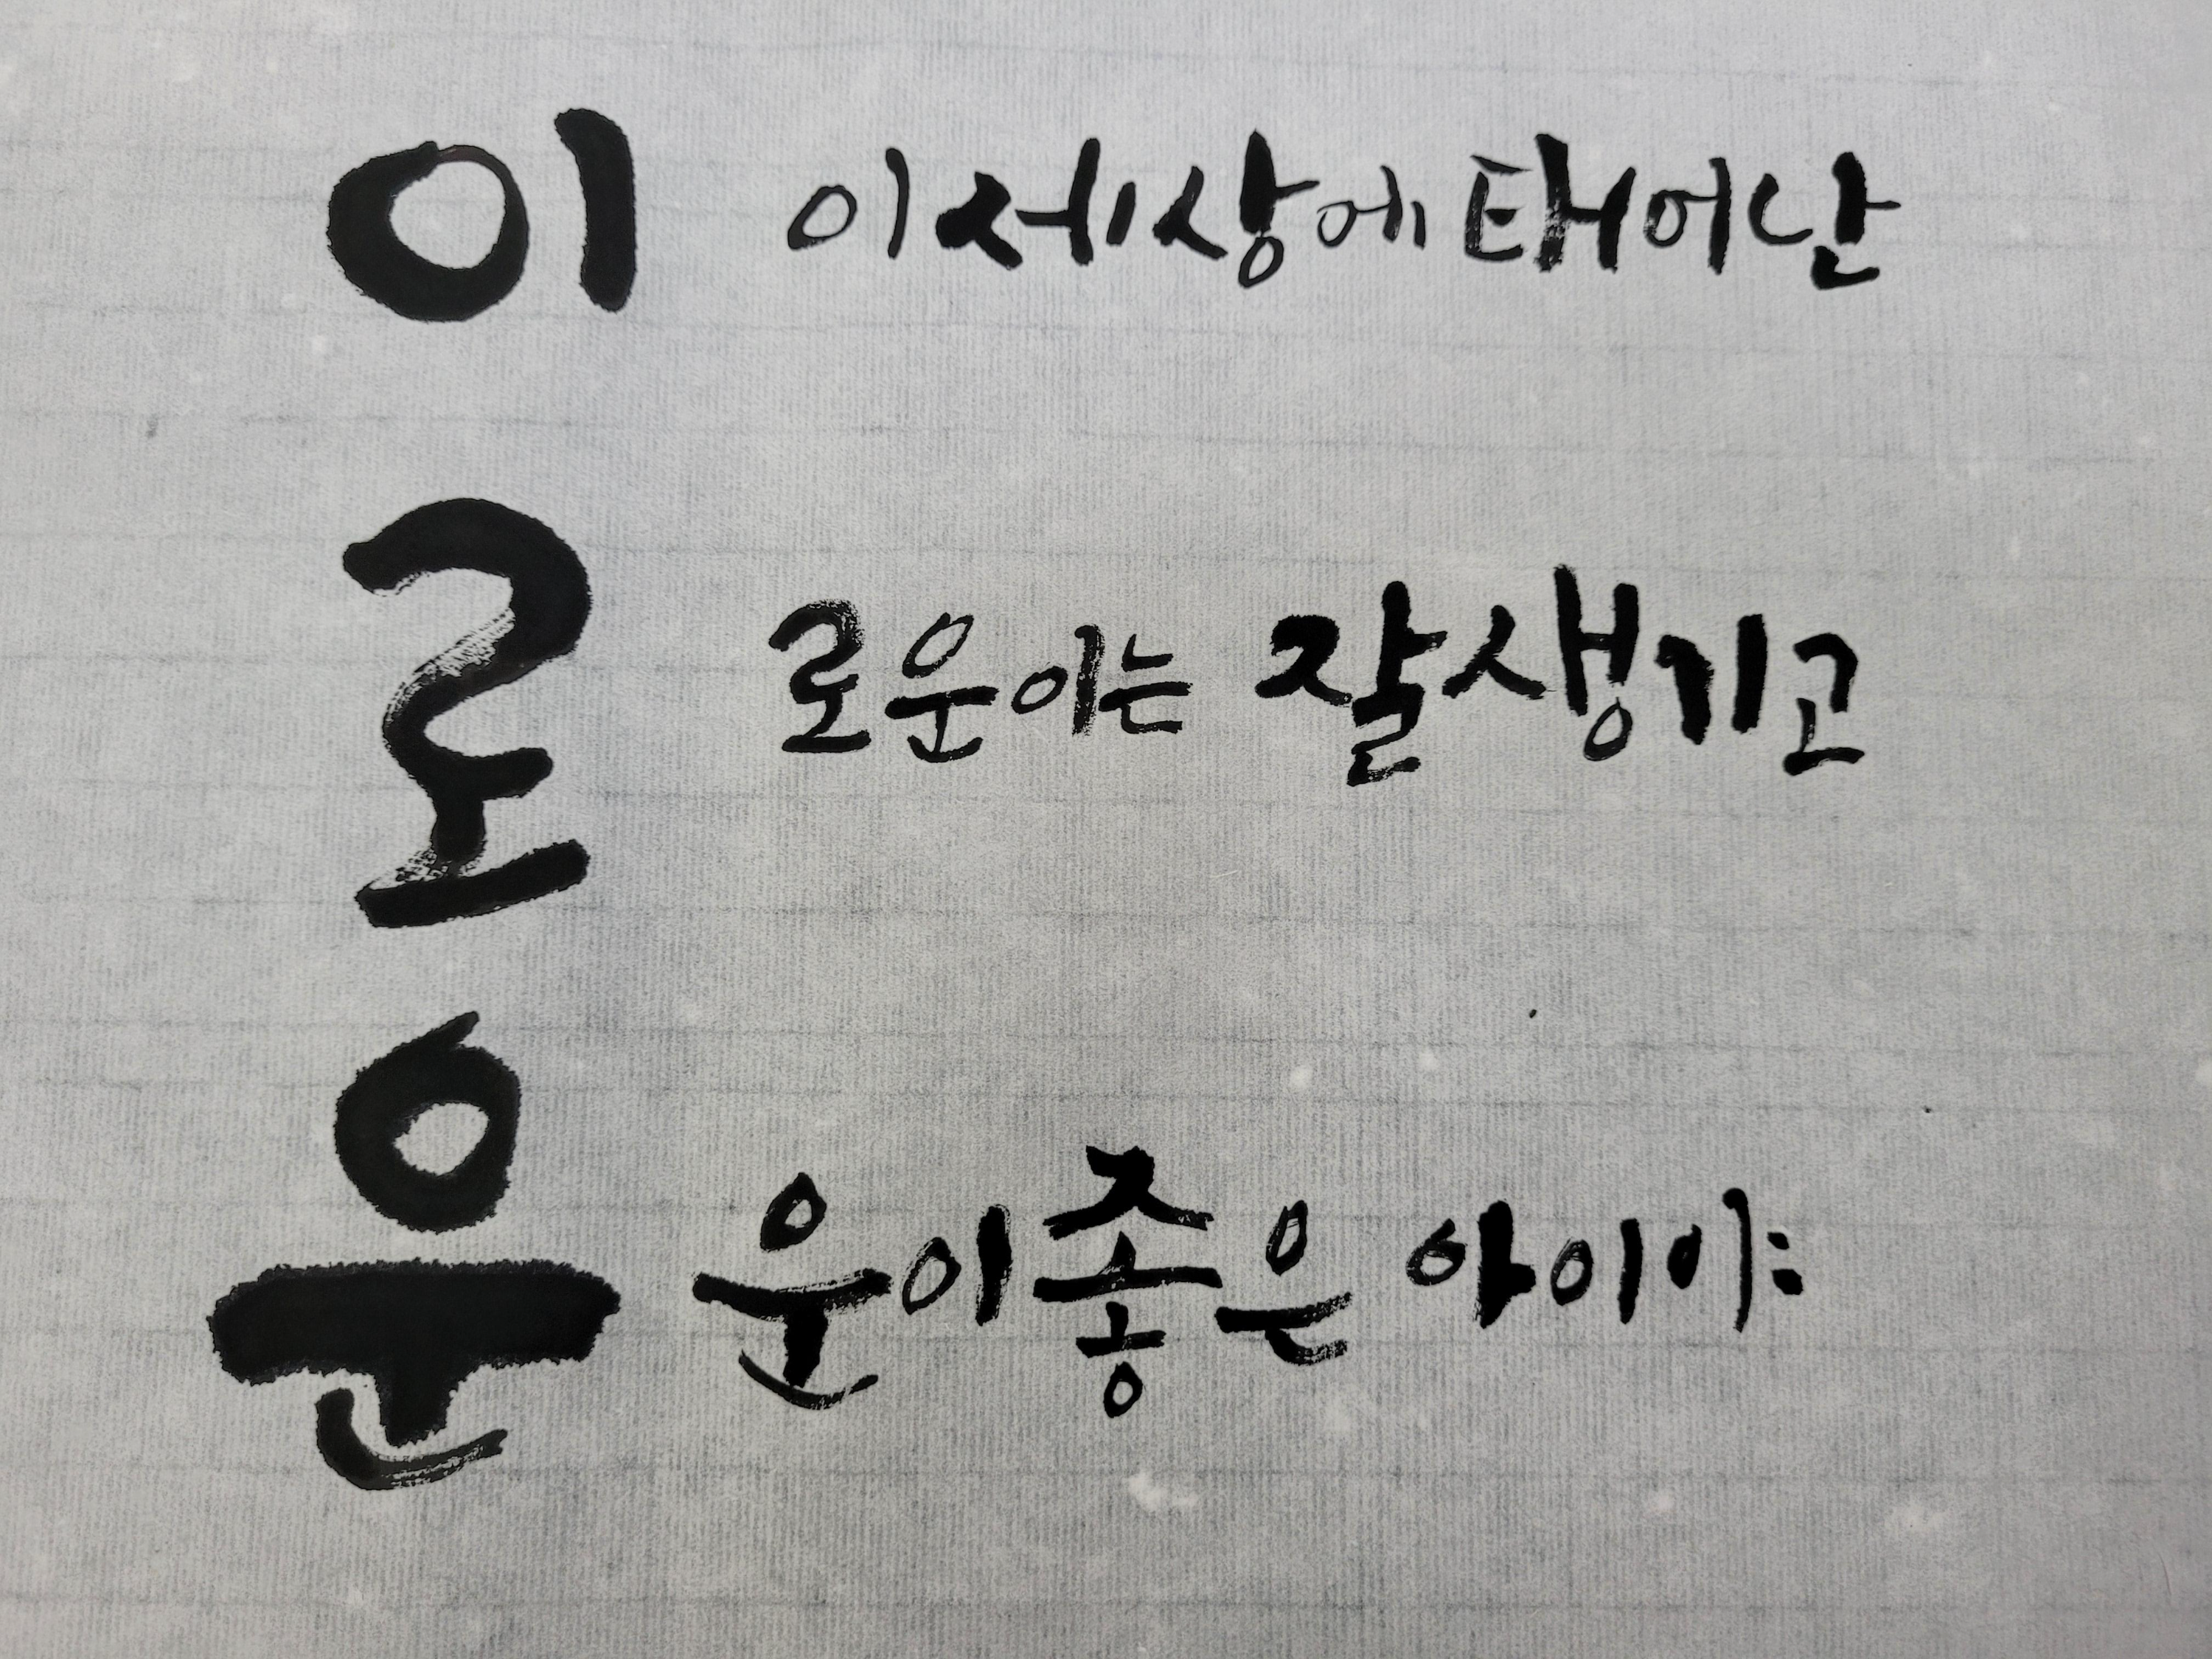 이 이 세상에 태어난
로 로운이는 잘생기고
운 운이 좋은 아이야